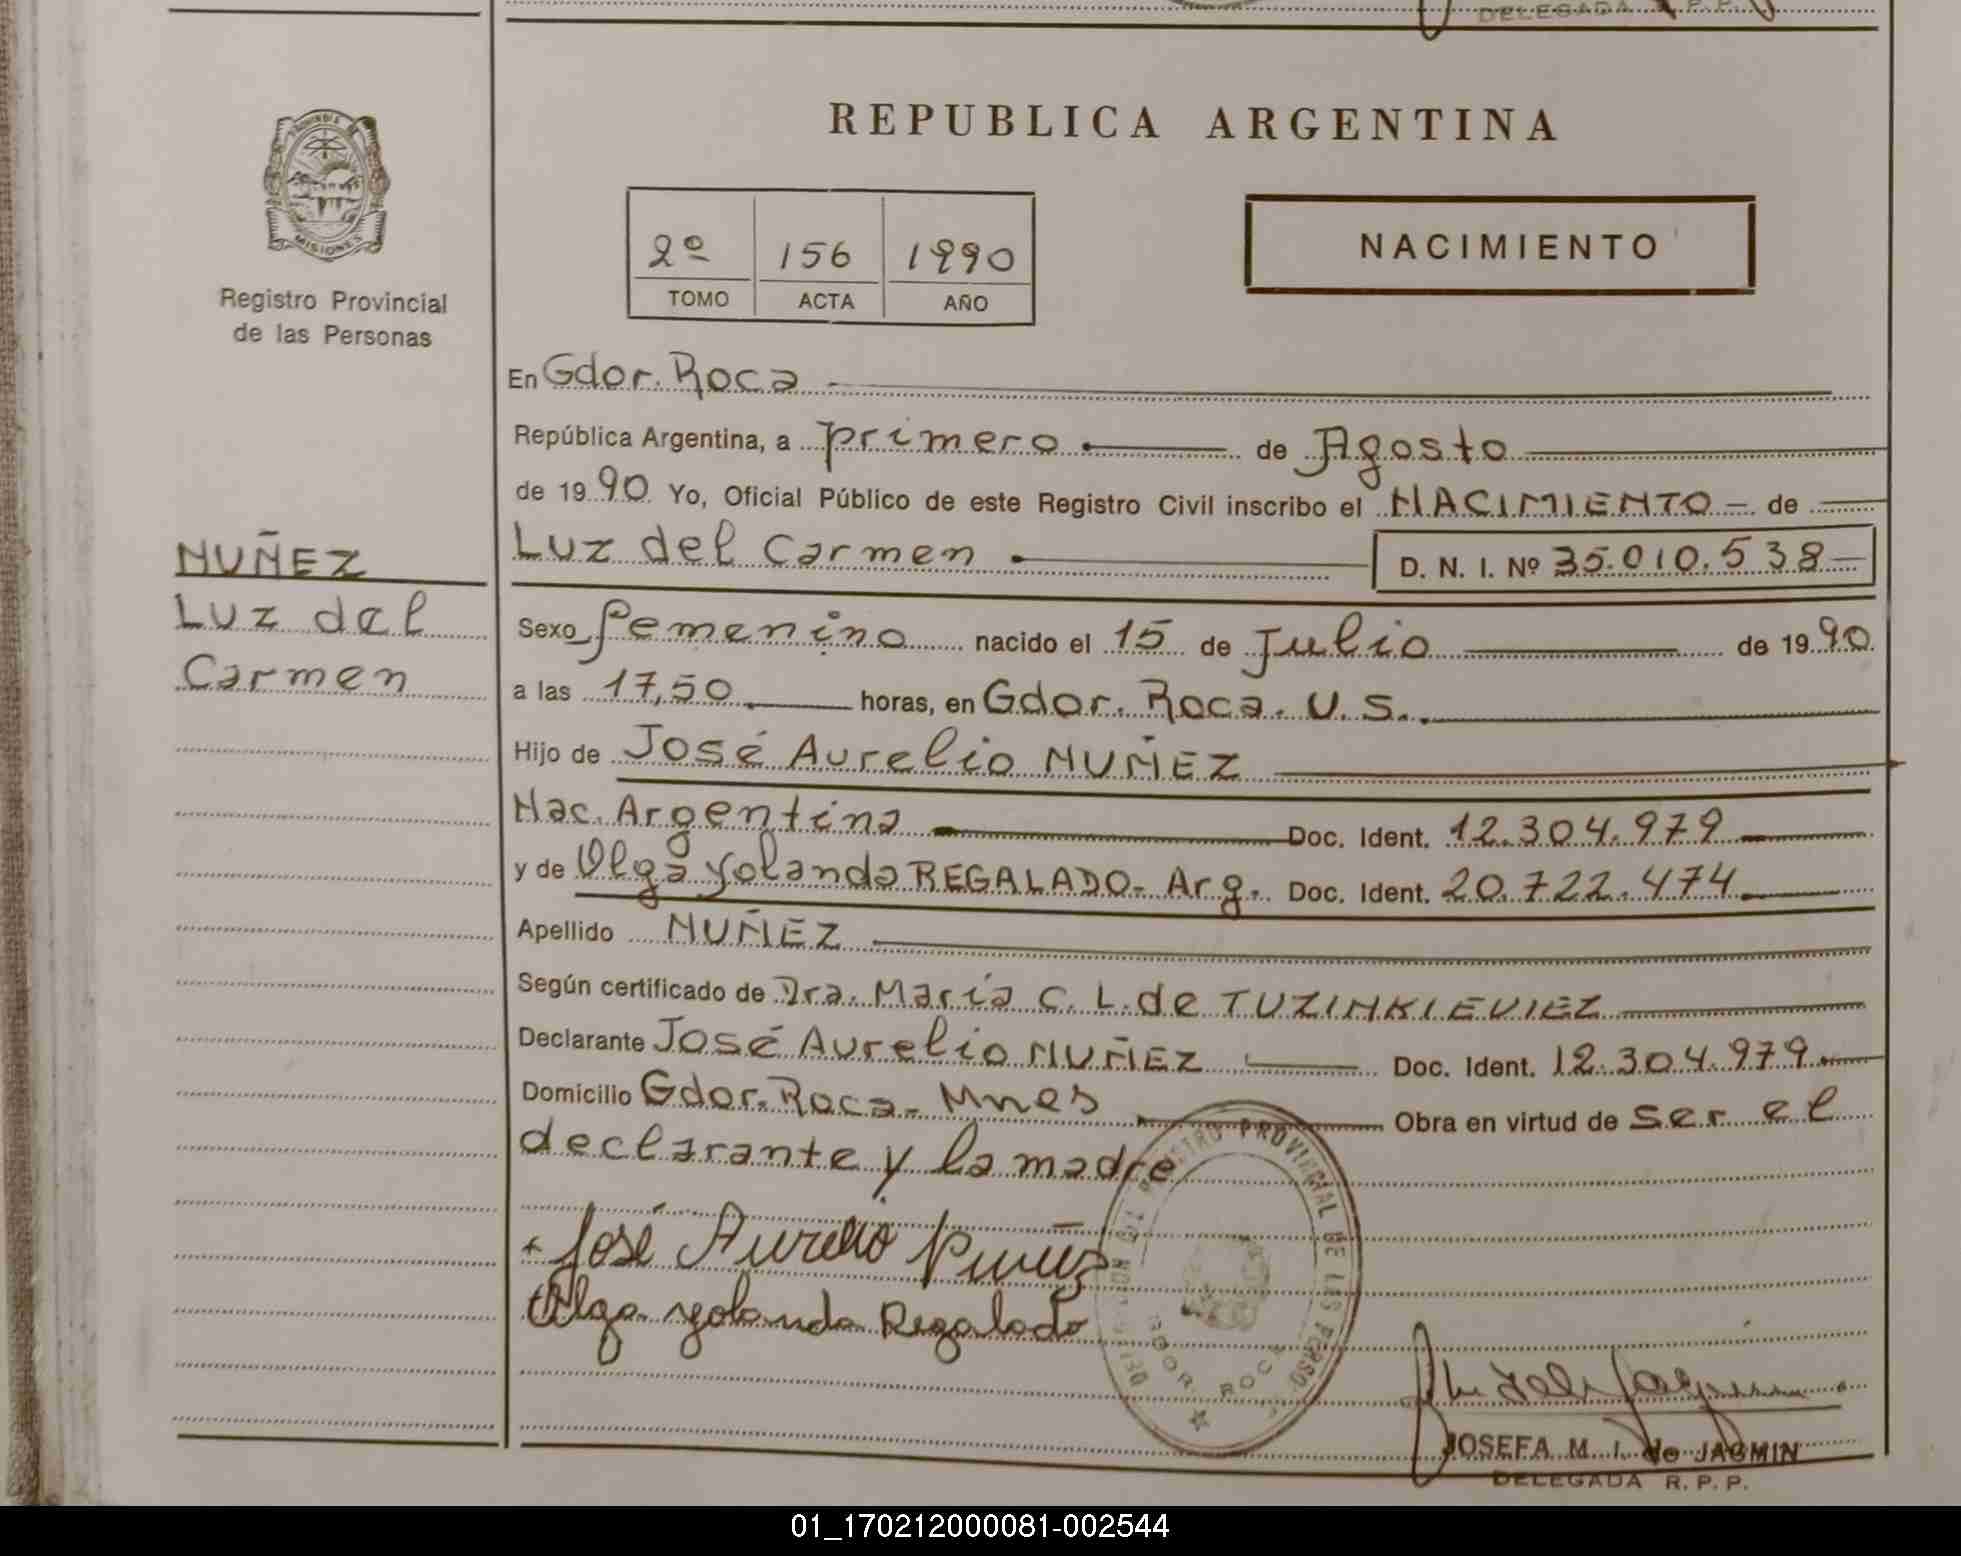 DELEGADA R. P. P.
REPUBLICA ARGENTINA
PROVINCIA DE
MISIONES
Registro Provincial
de las Personas
2º 156 1990
TOMO ACTA AÑO
NACIMIENTO
En Gdor. Roca
República Argentina, a primero de Agosto
de 1990 Yo, Oficial Público de este Registro Civil inscribo el NACIMIENTO - de
NUÑEZ
Luz del
Carmen
Luz del Carmen D. N. I. Nº 35.010.538
Sexo femenino nacido el 15 de Julio de 1990
a las 17,50 horas, en Gdor. Roca. U.S.
Hijo de José Aurelio NUÑEZ
Nac. Argentina Doc. Ident. 12.304.979
y de Olga Yolanda REGALADO- Arg. Doc. Ident. 20.722.474
Apellido NUÑEZ
Según certificado de Dra. María C. L. de TUZINKIEVIEZ
Declarante José Aurelio NUÑEZ Doc. Ident. 12.304.979
Domicilio Gdor. Roca- Mnes Obra en virtud de ser el
declarante y la madre
José Aurelio Nuñez
Olga Yolanda Regalado
DELEGACION DEL REGISTRO PROVINCIAL DE LAS PERSO
GDOR. ROCA
JOSEFA M. I. de JAGMIN
DELEGADA R. P. P.
01_170212000081-002544